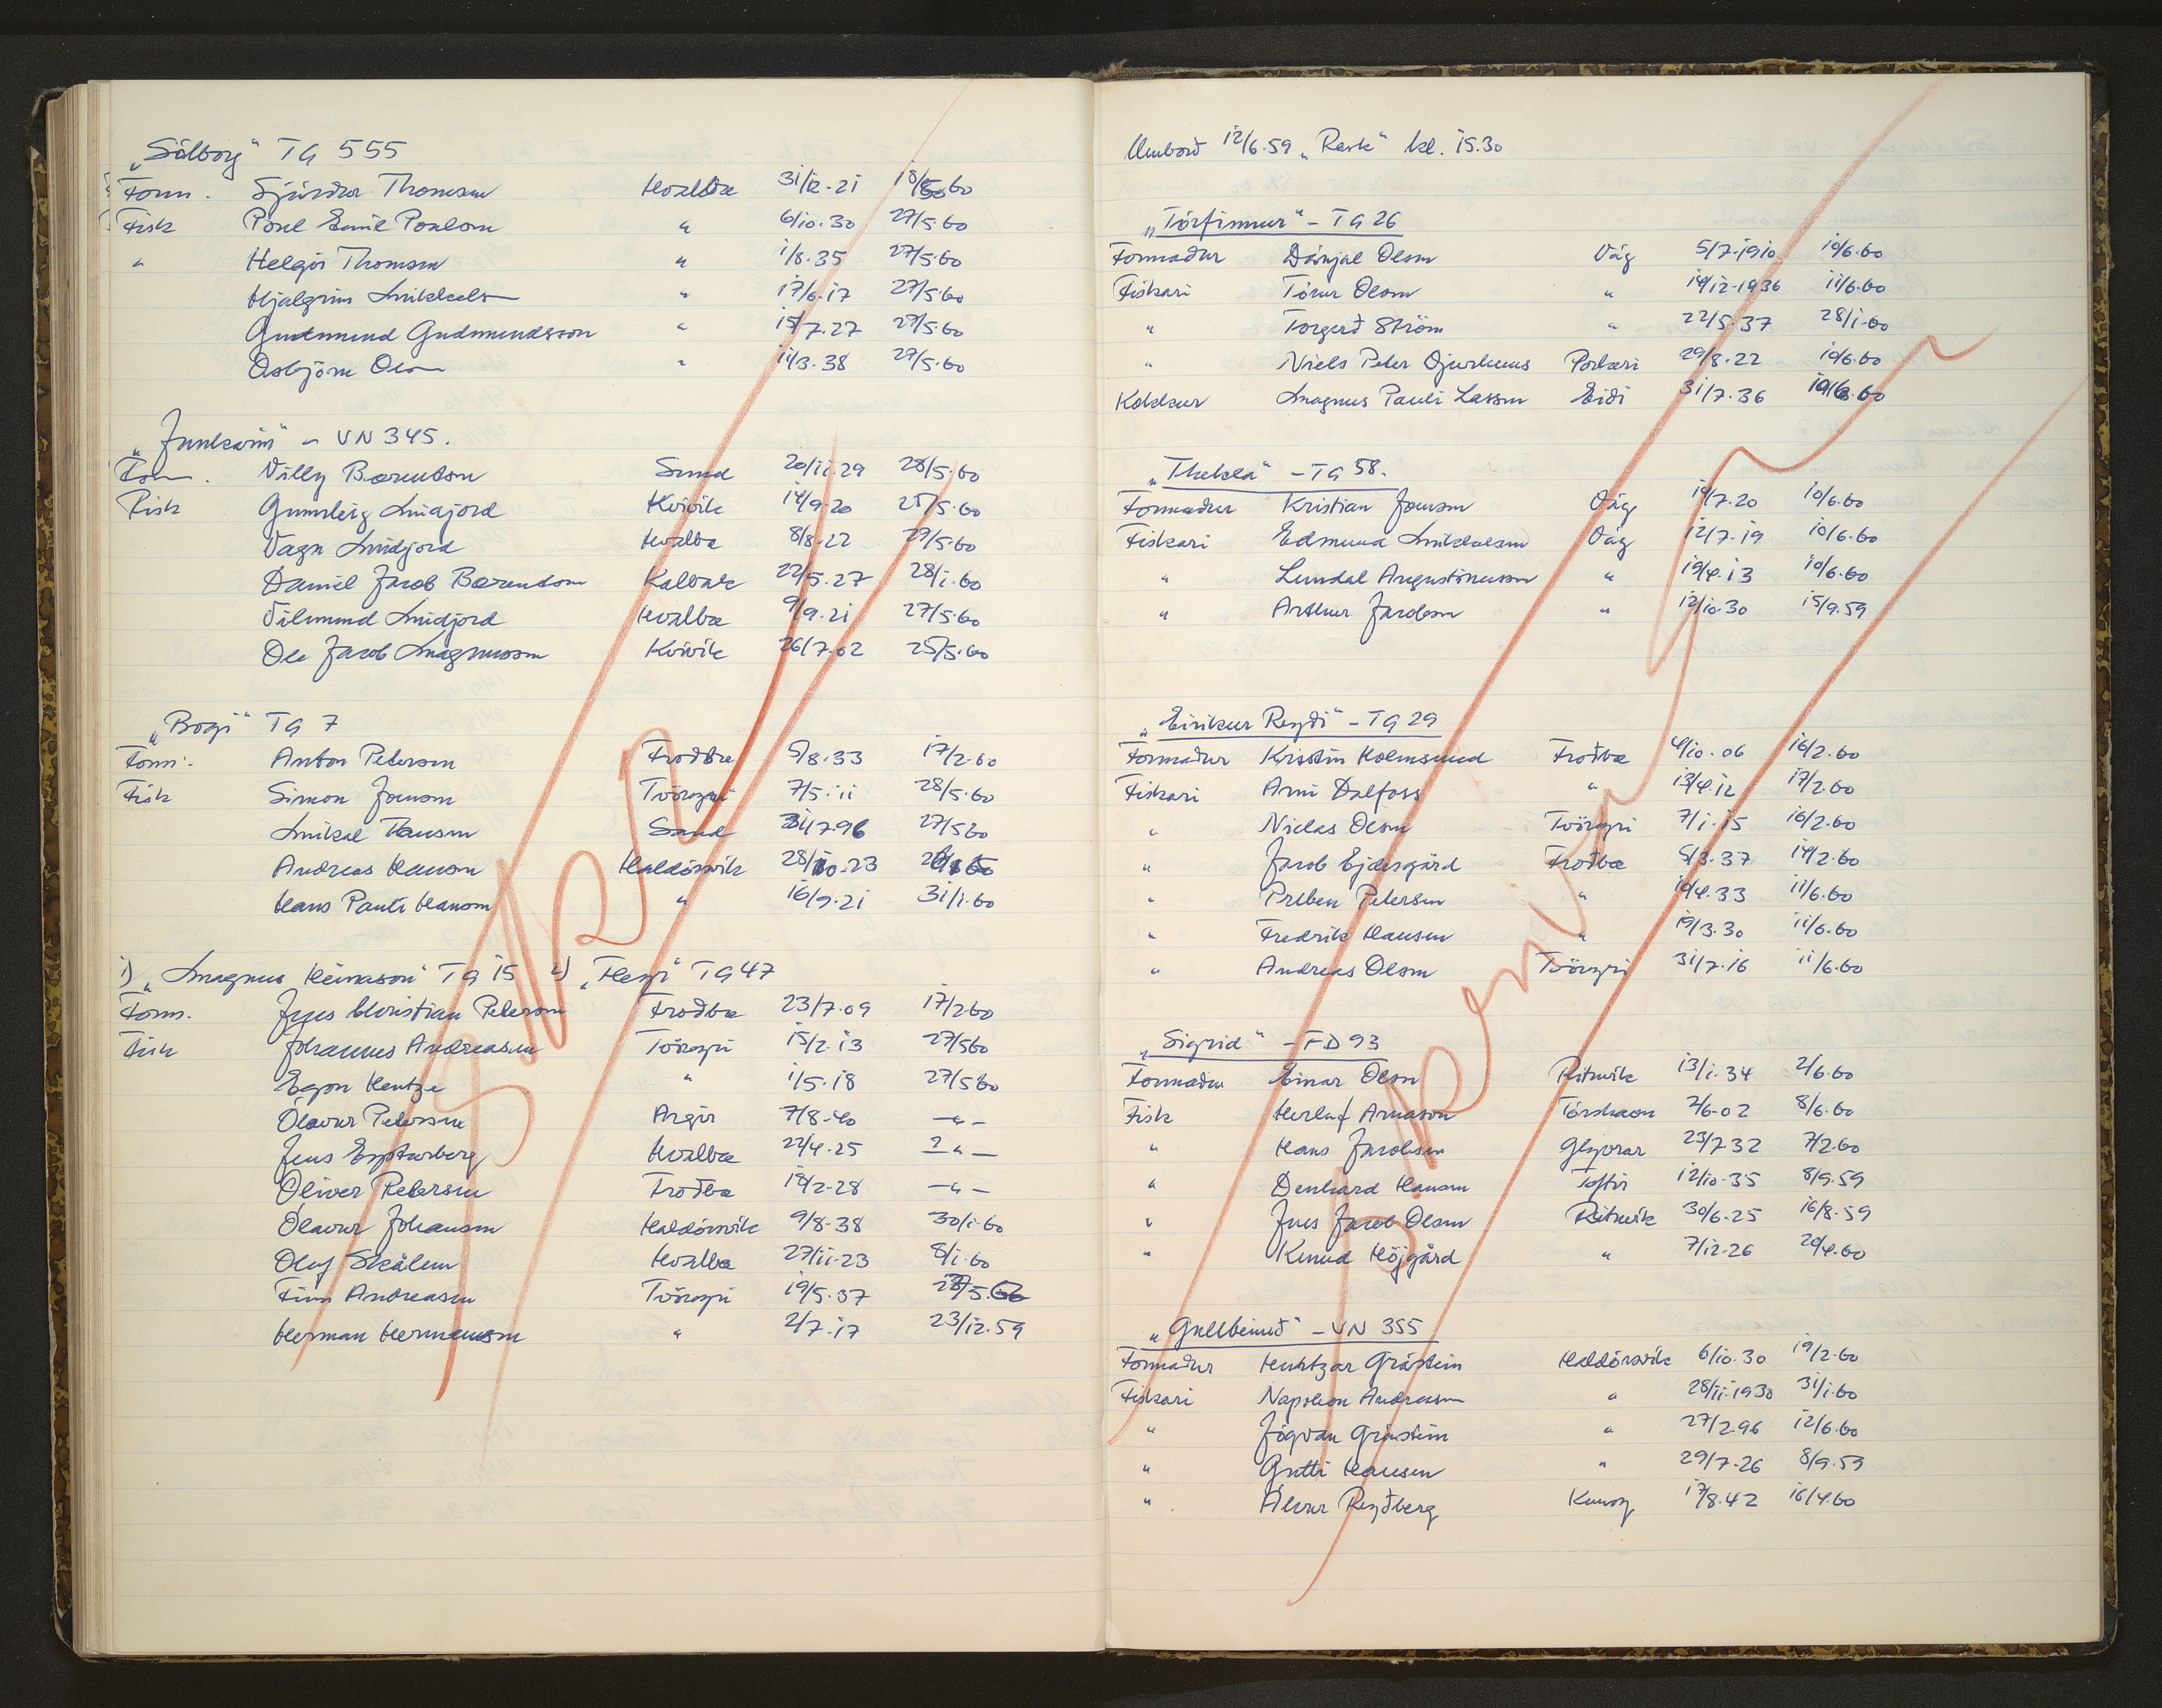 „Sólborg“ TG 555
Form. Sjúrður Thomsen Hvalba 31/12-21 18/5 60
Fisk Poul Emil Poulsen " 6/10.30 27/5.60
" Helgi Thomsen " 1/8.35 27/5.60
Hjalgrim Mikkelsen " 17/6.17 27/5.60
Gudmund Gudmundsson " 15/7.27 27/5.60
Asbjörn Olsen " 11/3.38 27/5.60
„Junkarin“ – VN 345.
Form. Villy Barentsen Sund 20/11.29 28/5.60
Fisk Gunnleig Midjord Kvívík 14/9.20 25/5.60
Vagn Midjord Hvalba 8/8.22 27/5.60
Daniel Jacob Barentsen Kalbak 22/5.27 28/1.60
Vilmund Midjord Hvalba 9/9.21 27/5.60
Ole Jacob Magnussen Kvívík 26/7.02 25/5.60
„Bogi“ TG 7
Form. Anton Petersen Froðba 5/8.33 17/2.60
Fisk Simon Joensen Tvöroyri 7/5.11 28/5.60
Mikal Hansen Sand 31/7.96 27/5 60
Andreas Hansen Haldórsvík 28/10.23
Hans Pauli Hansen " 16/9.21 31/1.60
1) „Magnus Heinason“ TG 15 2) TG 47
Form. Jens Christian Petersen Froðba 23/7.09 17/2 60
Fisk Johannus Andreasen Tvöroyri 15/2.13 27/5 60
Egon Hentze " 1/5.18 27/5 60
Ólavur Petersen Argir 7/8.40 – " –
Jens Eysturberg Hvalba 22/4.25 ? " –
Óliver Petersen Froðba 18/2-28 – " –
Ólavur Johansen Haldórsvík 9/8.38 30/1.60
Oluf Skålum Hvalba 27/11.23 8/1.60
Finn Andreasen Tvöroyri 19/5.37 27/5.60
Herman Hermansen " 2/7.17 23/12.59
Umborð 12/6.59 „Rask“ kl. 15.30
„Tórfinnur“ – TG 26
Formaður Dánjal Olsen Vág 5/7.1910 10/6.60
Fiskari Tórur Olsen " 14/12-1936 11/6.60
" Torgerð Ström " 22/5.37 28/1.60
" Niels Peter Djurhuus Porkeri 29/8.22 10/6.60
Kokkur Magnus Pauli Lassen Eiði 31/7.36 10/6.60
„Thekla“ – TG 58.
Formaður Kristian Joensen Vág 19/7.20 10/6.60
Fiskari Edmund Mikkelsen Vág 12/7.19 10/6.60
" Lundal Augustinussen " 19/4.13 10/6.60
" Arthur Jacobsen " 12/10.30 15/9.59
„Eirikur Reyði“ – TG 29
Formaður Kristin Holmsund Froðba 4/10.06 16/2.60
Fiskari Arni Dalfoss " 13/4.12 17/2.60
" Niclas Olsen Tvöroyri 7/1.15 16/2.60
" Jacob Ejdesgård Froðba 5/3.37 17/2.60
" Preben Petersen " 10/4.33 11/6.60
" Fredrik Hansen " 19/3.30 11/6.60
" Andreas Olsen Tvöroyri 31/7.16 11/6.60
„Sigrid“ – FD 93
Formaður Einar Olsen Rituvík 13/1.34 2/6.60
Fisk Herluf Arnason Tórshavn 7/6-02 8/6.60
" Hans Jacobsen Glyvrar 23/7 32 7/2.60
" Denhard Hansen Toftir 12/10.35 8/9.59
" Jens Jacob Olsen Rituvík 30/6.25 16/8.59
" Knud Höjgård " 7/12.26 20/4.60
„Gullbeinið“ – VN 355
Formaður Gråstein Haldórsvík 6/10.30 19/2.60
Fiskari Napoleon Andreasen " 28/11.1930 31/1.60
" Jógvan Gråstein " 27/2.96 12/6.60
" Gutti Hansen " 29/7.26 8/9.59
" Álvur Reyðberg Kunoy 17/8.42 16/4.60